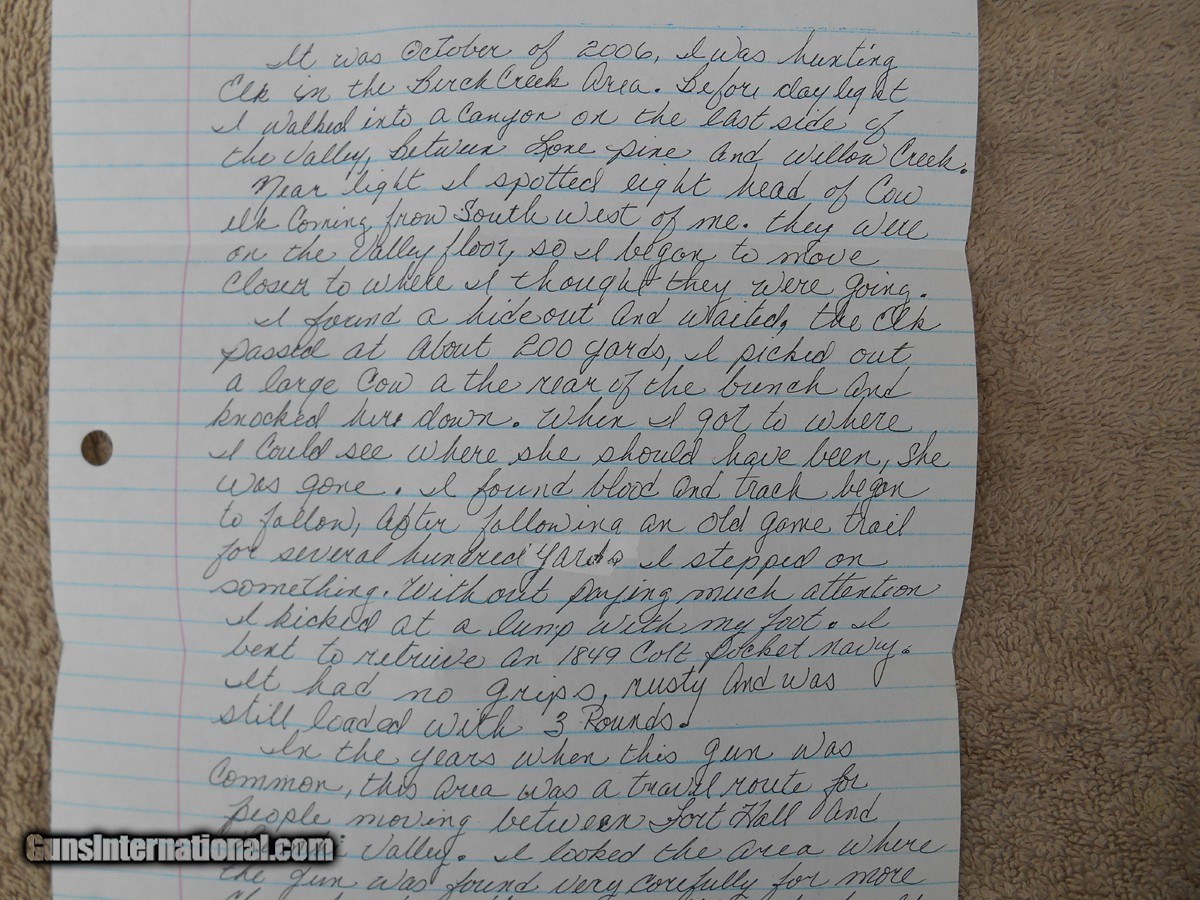 It was October of 2006, I was hunting
Elk in the Birch Creek Area. Before daylight
I walked into a Canyon on the East side of
the Valley, Between Lone pine and Willow Creek.
Near light I spotted eight head of Cow
elk Coming from South West of me. they were
on the Valley floor, so I began to move
Closer to where I thought they were going.
I found a hideout and waited, the Elk
passed at About 200 yards, I picked out
a large Cow a the rear of the bunch and
knocked her down. When I got to where
I Could see where she should have been, She
was gone. I found blood and track began
to follow, After following an old game trail
for several hundred yards I stepped on
something. Without paying much attention
I kicked at a lump with my foot. I
bent to retrieve an 1849 Colt Pocket navy.
It had no grips, rusty and was
still loaded with 3 Rounds.
In the years when this gun was
Common, this area was a travel route for
People moving between Fort Hall and
Valley. I looked the area where
the gun was found very carefully for more
GunsInternational.com